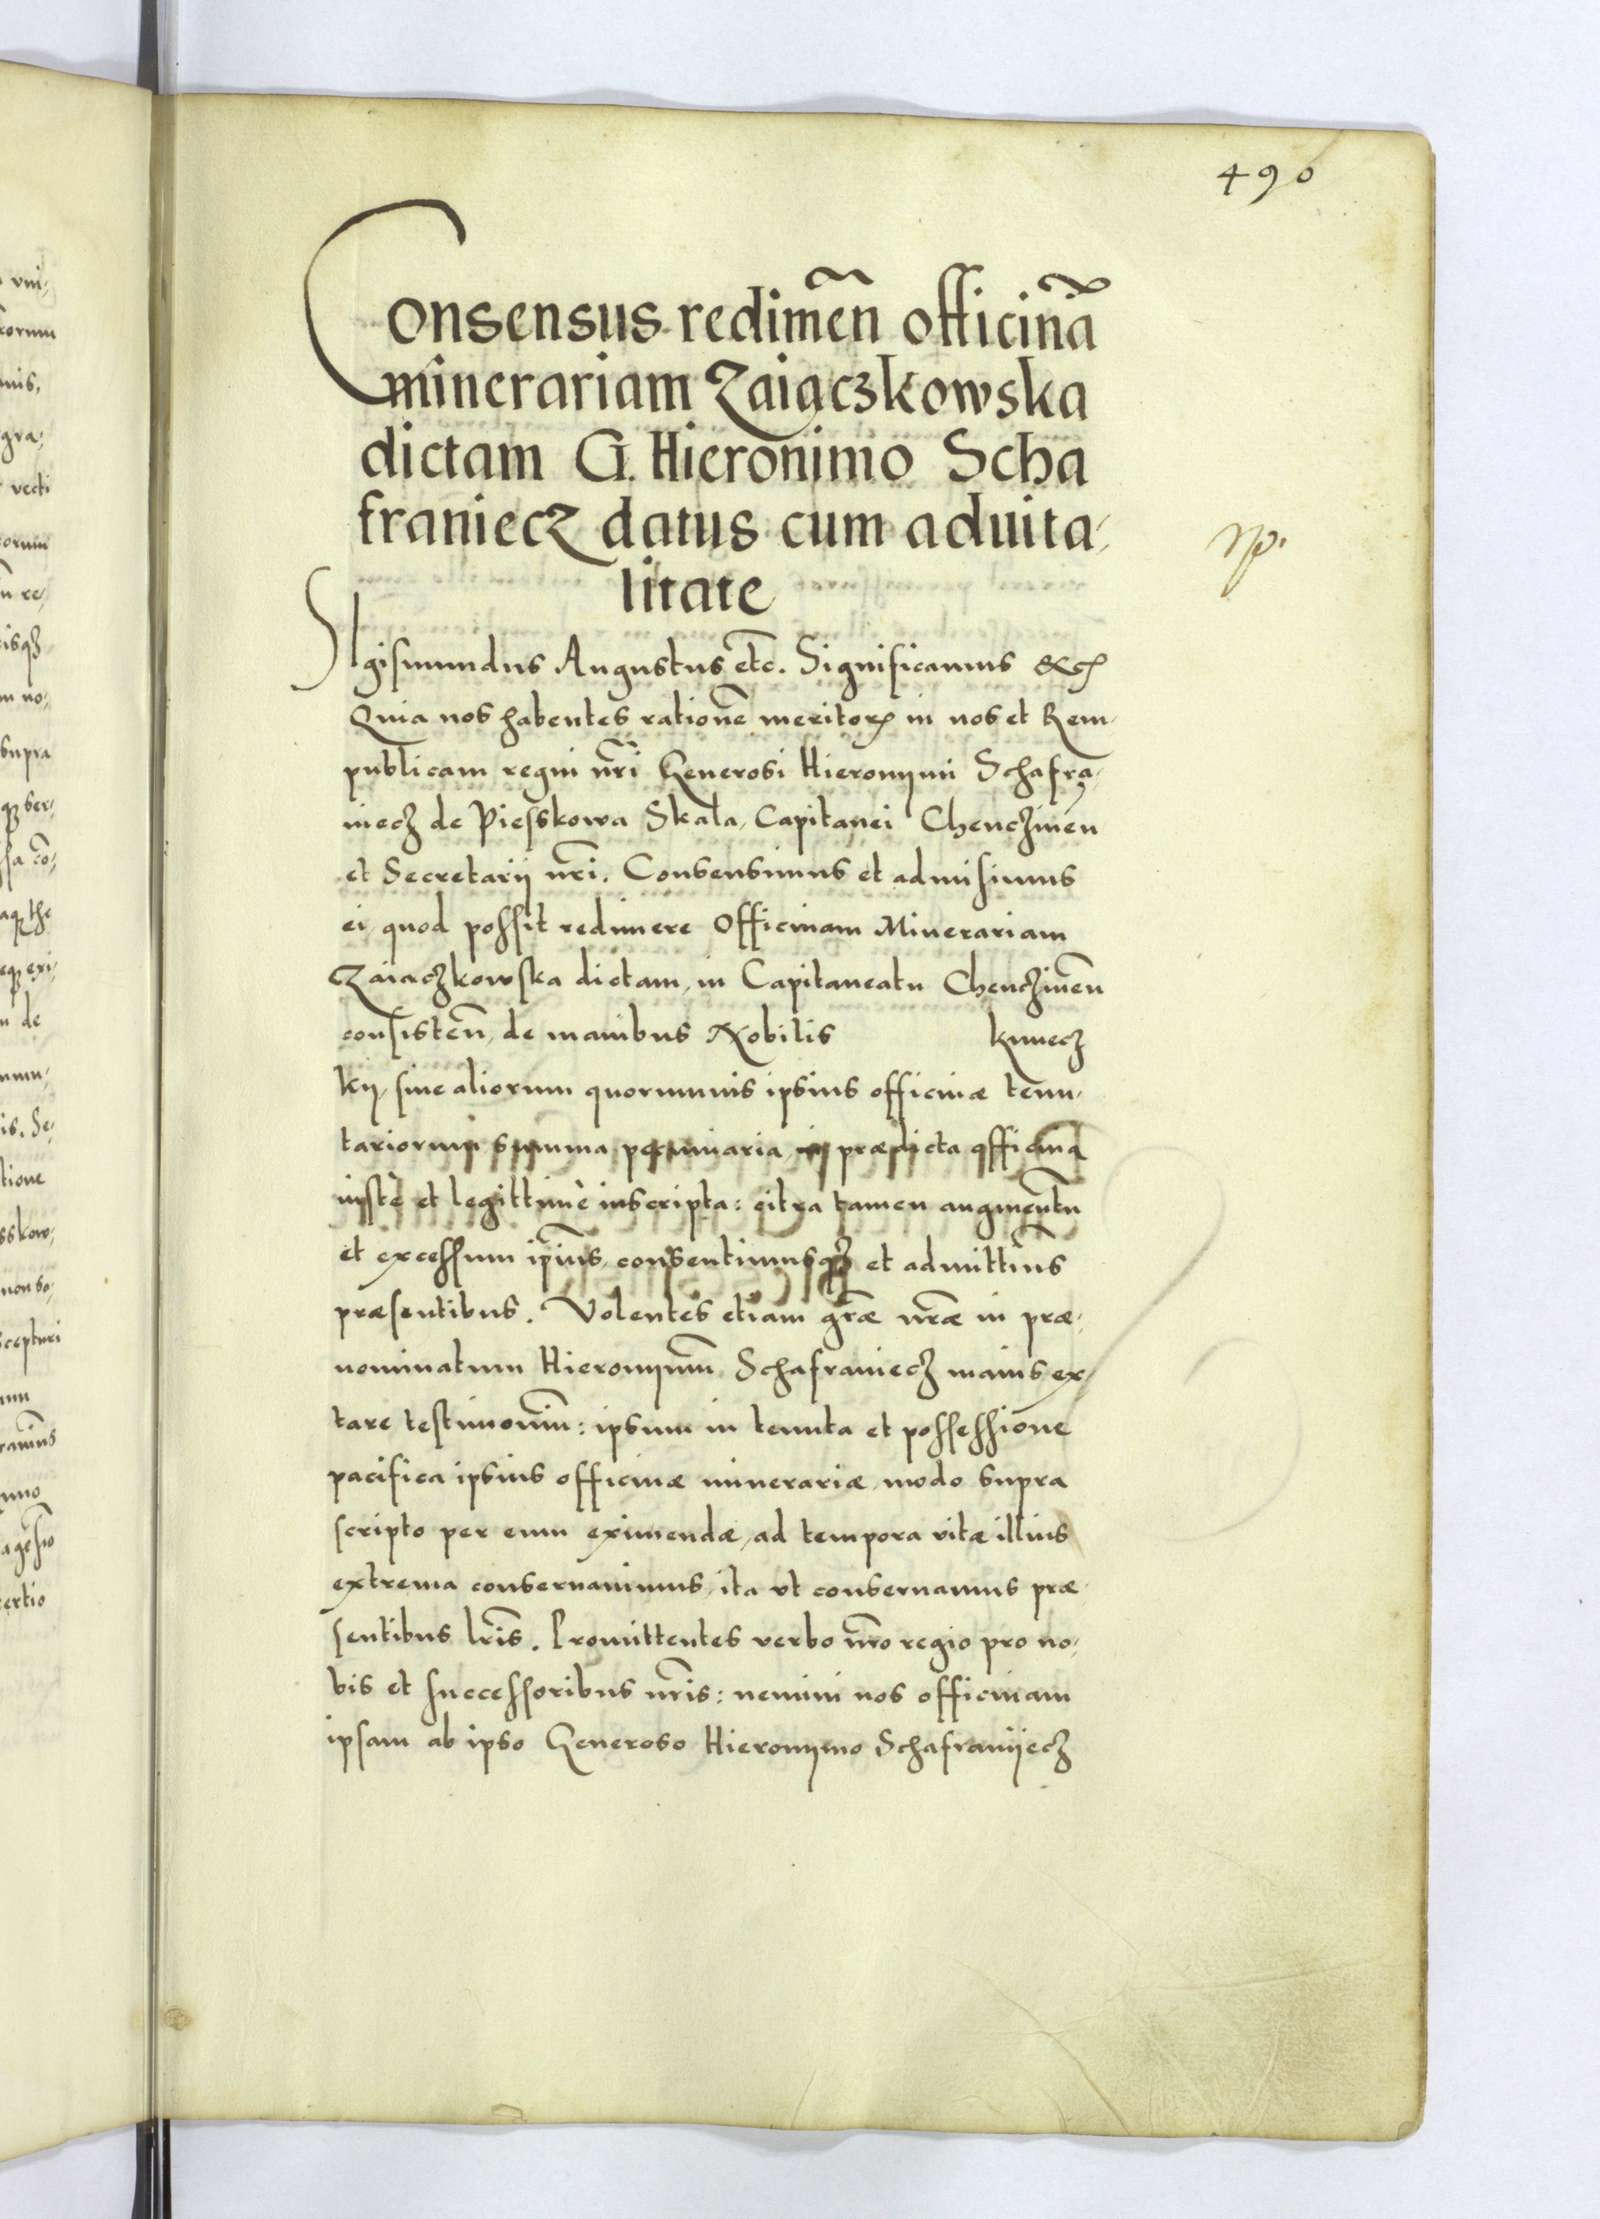 490
Consensus redimen̄ officinā
minerariam Zaiączkowska
dictam G. Hieronimo Scha
franiecz datus cum aduita-
litate
Np.
SIgismundus Augustus etc̄. Significamus &c
Quia nos habentes rationē meritorꝝ in nos et Rem-
publicam regni nr̄i Generosi Hieronymi Schafra-
niecz de Piesskowa Skala, Capitanei Chenczineñ
et Secretarij nr̄i. Consensimus et admisimus
ei, quod possit redimere Officinam Minerariam
Zaiaczkowska dictam, in Capitaneatu Chenczinen̄
consisten̄, de manibus Nobilis Kunecz
kij, siue aliorum quorumuis ipsius officinæ tenu-
tariorum summa pecuniaria, in prædicta officina
iustè et legittimè inscripta: citra tamen augmentū
et excessum ip̄ius, consentimusqꝫ et admittim̄us
præsentibus. Volentes etiam gr̄æ nr̄æ in præ-
nominatum Hieronymū Schafraniecz maius ex-
tare testimoniū: ipsum in tenuta et possessione
pacifica ipsius officinæ minerariæ, modo supra
scripto per eum eximendæ, ad tempora vitæ illius
extrema conseruauimus, ita vt conseruamus præ-
sentibus lr̄is. Promittentes verbo nr̄o regio pro no-
bis et successoribus nr̄is: nemini nos officinam
ipsam ab ipso Generoso Hieronymo Schafranijecz